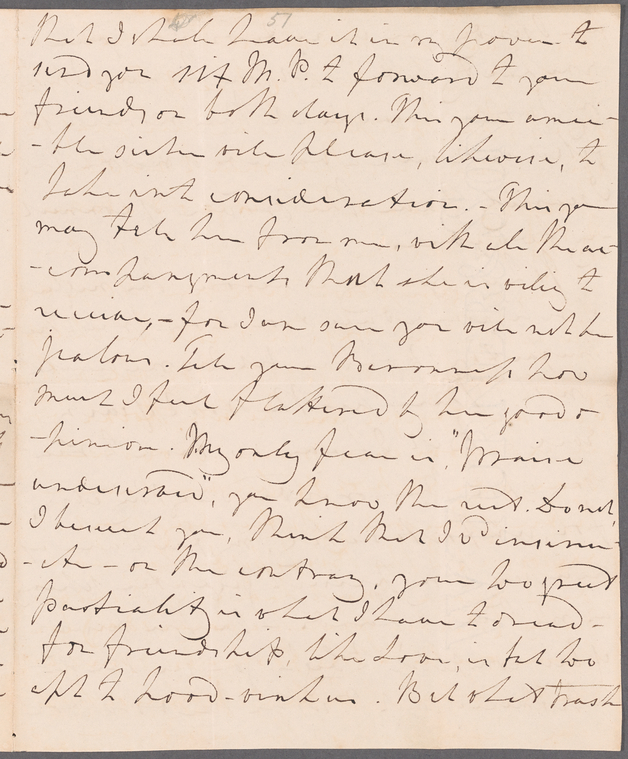 51
that I shall have it in my power to
send you six M. P. to forward to your
friends on both days. This your amia-
-ble sister will please, likewise, to
take into consideration. - This you
may tell her from me, with all the ac-
-companyments that she is willing to
receive, - for I am sure you will not be
jealous. Tell your Baronness how
much I feel flattered by her good o-
-pinion. My only fear is, "praise
undeserved", you know the rest. Do not,
I beseech you, think that I wd insinu-
-ate - on the contrary, your too great
partiality is what I have to dread -
for friendship, like Love, is but too
apt to hood-wink us. But what trash